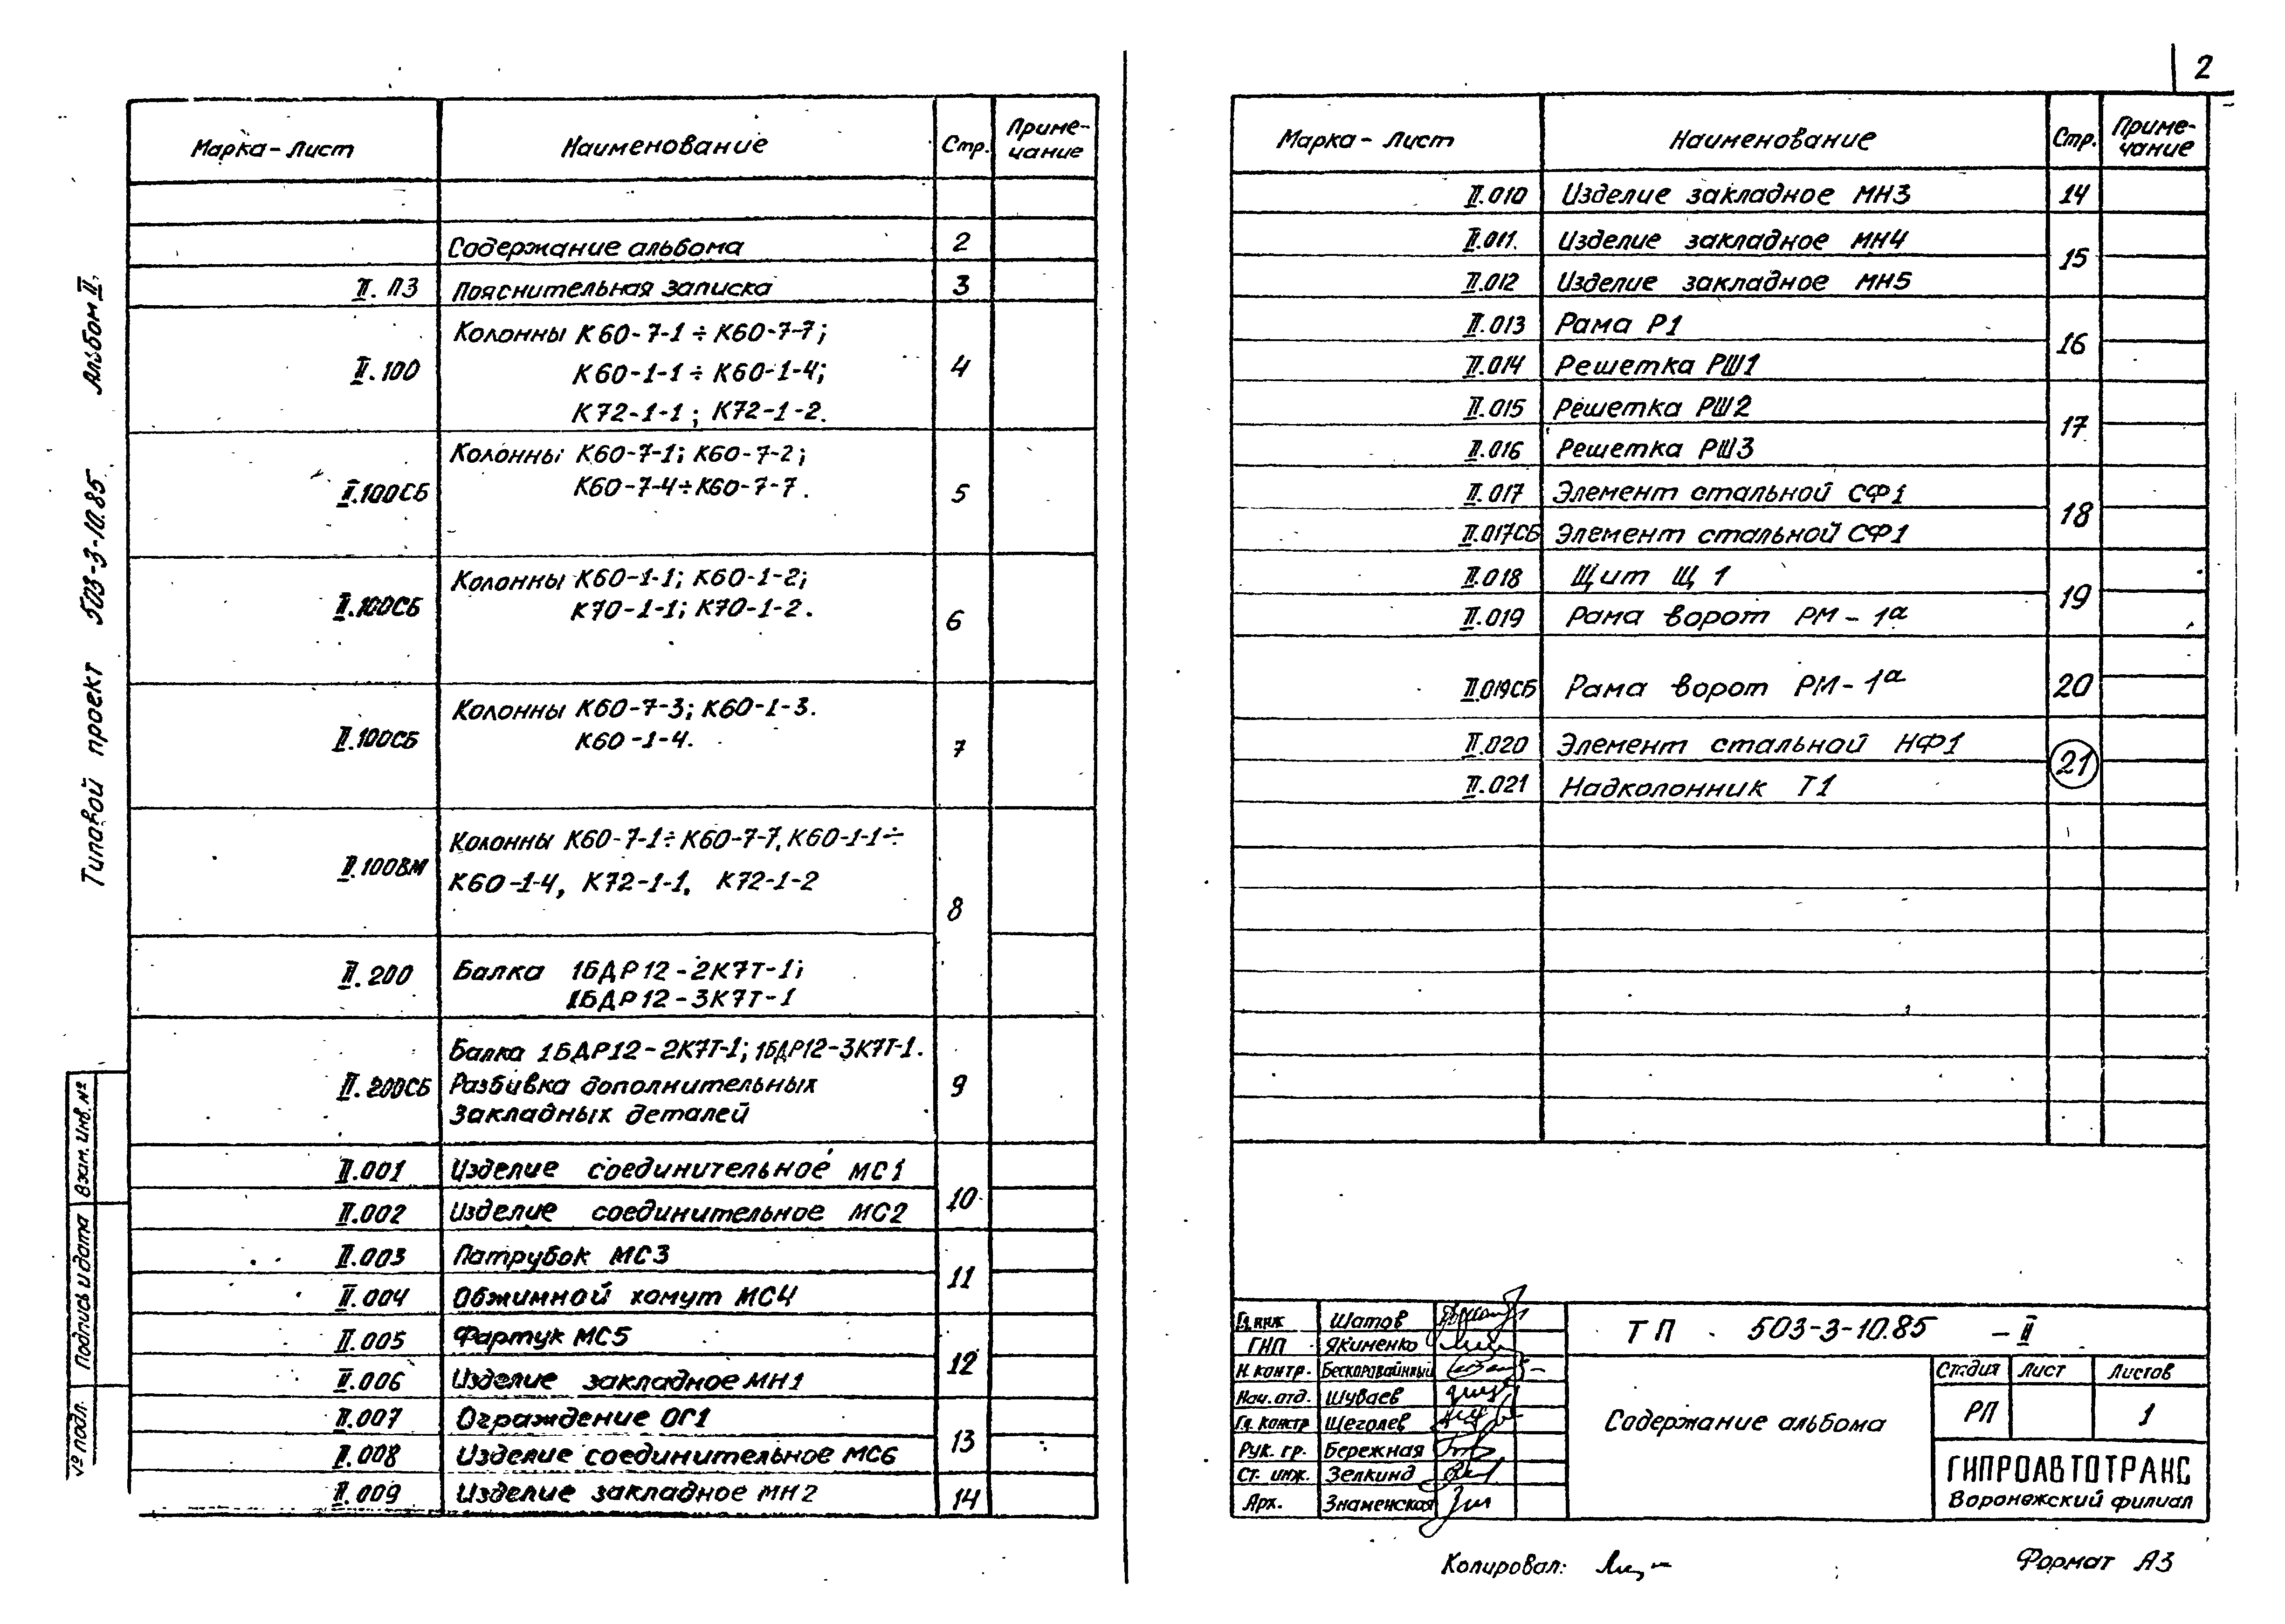 2
Типовой проект 503-3-10.85 Альбом II
Взам. инв. №
Подпись и дата
№ подл.
Марка-лист Наименование Стр. Приме-чание
Содержание альбома 2
II. ПЗ Пояснительная записка 3
Колонны К60-7-1÷К60-7-7;
II.100 К60-1-1÷К60-1-4; 4
К72-1-1; К72-1-2.
Колонны К60-7-1; К60-7-2;
II.100СБ К60-7-4÷К60-7-7. 5
Колонны К60-1-1; К60-1-2;
II.100СБ К70-1-1; К70-1-2. 6
Колонны К60-7-3; К60-1-3.
II.100СБ К60-1-4. 7
Колонны К60-7-1÷К60-7-7, К60-1-1÷
II.100ВМ К60-1-4, К72-1-1, К72-1-2
8
II.200 Балка 1БДР12-2К7Т-1;
1БДР12-3К7Т-1
Балка 1БДР12-2К7Т-1; 1БДР12-3К7Т-1.
II.200СБ Разбивка дополнительных 9
закладных деталей
II.001 Изделие соединительное МС1
10
II.002 Изделие соединительное МС2
II.003 Патрубок МС3
11
II.004 Обжимной хомут МС4
II.005 Фартук МС5
12
II.006 Изделие закладное МН1
II.007 Ограждение ОГ1
13
II.008 Изделие соединительное МС6
II.009 Изделие закладное МН2 14
Марка-лист Наименование Стр. Приме-чание
II.010 Изделие закладное МН3 14
II.011. Изделие закладное МН4
15
II.012 Изделие закладное МН5
II.013 Рама Р1
16
II.014 Решетка РШ1
II.015 Решетка РШ2
17
II.016 Решетка РШ3
II.017 Элемент стальной СФ1
18
II.017СБ Элемент стальной СФ1
II.018 Щит Щ 1
19
II.019 Рама ворот РМ-1а
II.019СБ Рама ворот РМ-1а 20
II.020 Элемент стальной НФ1
21
II.021 Надколонник Т1
Гл. инж Шатов
ГНП Якименко
Н. контр. Бескоравайный
Нач. отд. Шуваев
Гл. констр Щеголев
Рук. гр. Бережная
Ст. инж. Зелкинд
Арх. Знаменская
ТП 503-3-10.85 -II
Содержание альбома
Стадия Лист Листов
РП 1
ГИПРОАВТОТРАНС
Воронежский филиал
Копировал:
Формат А3